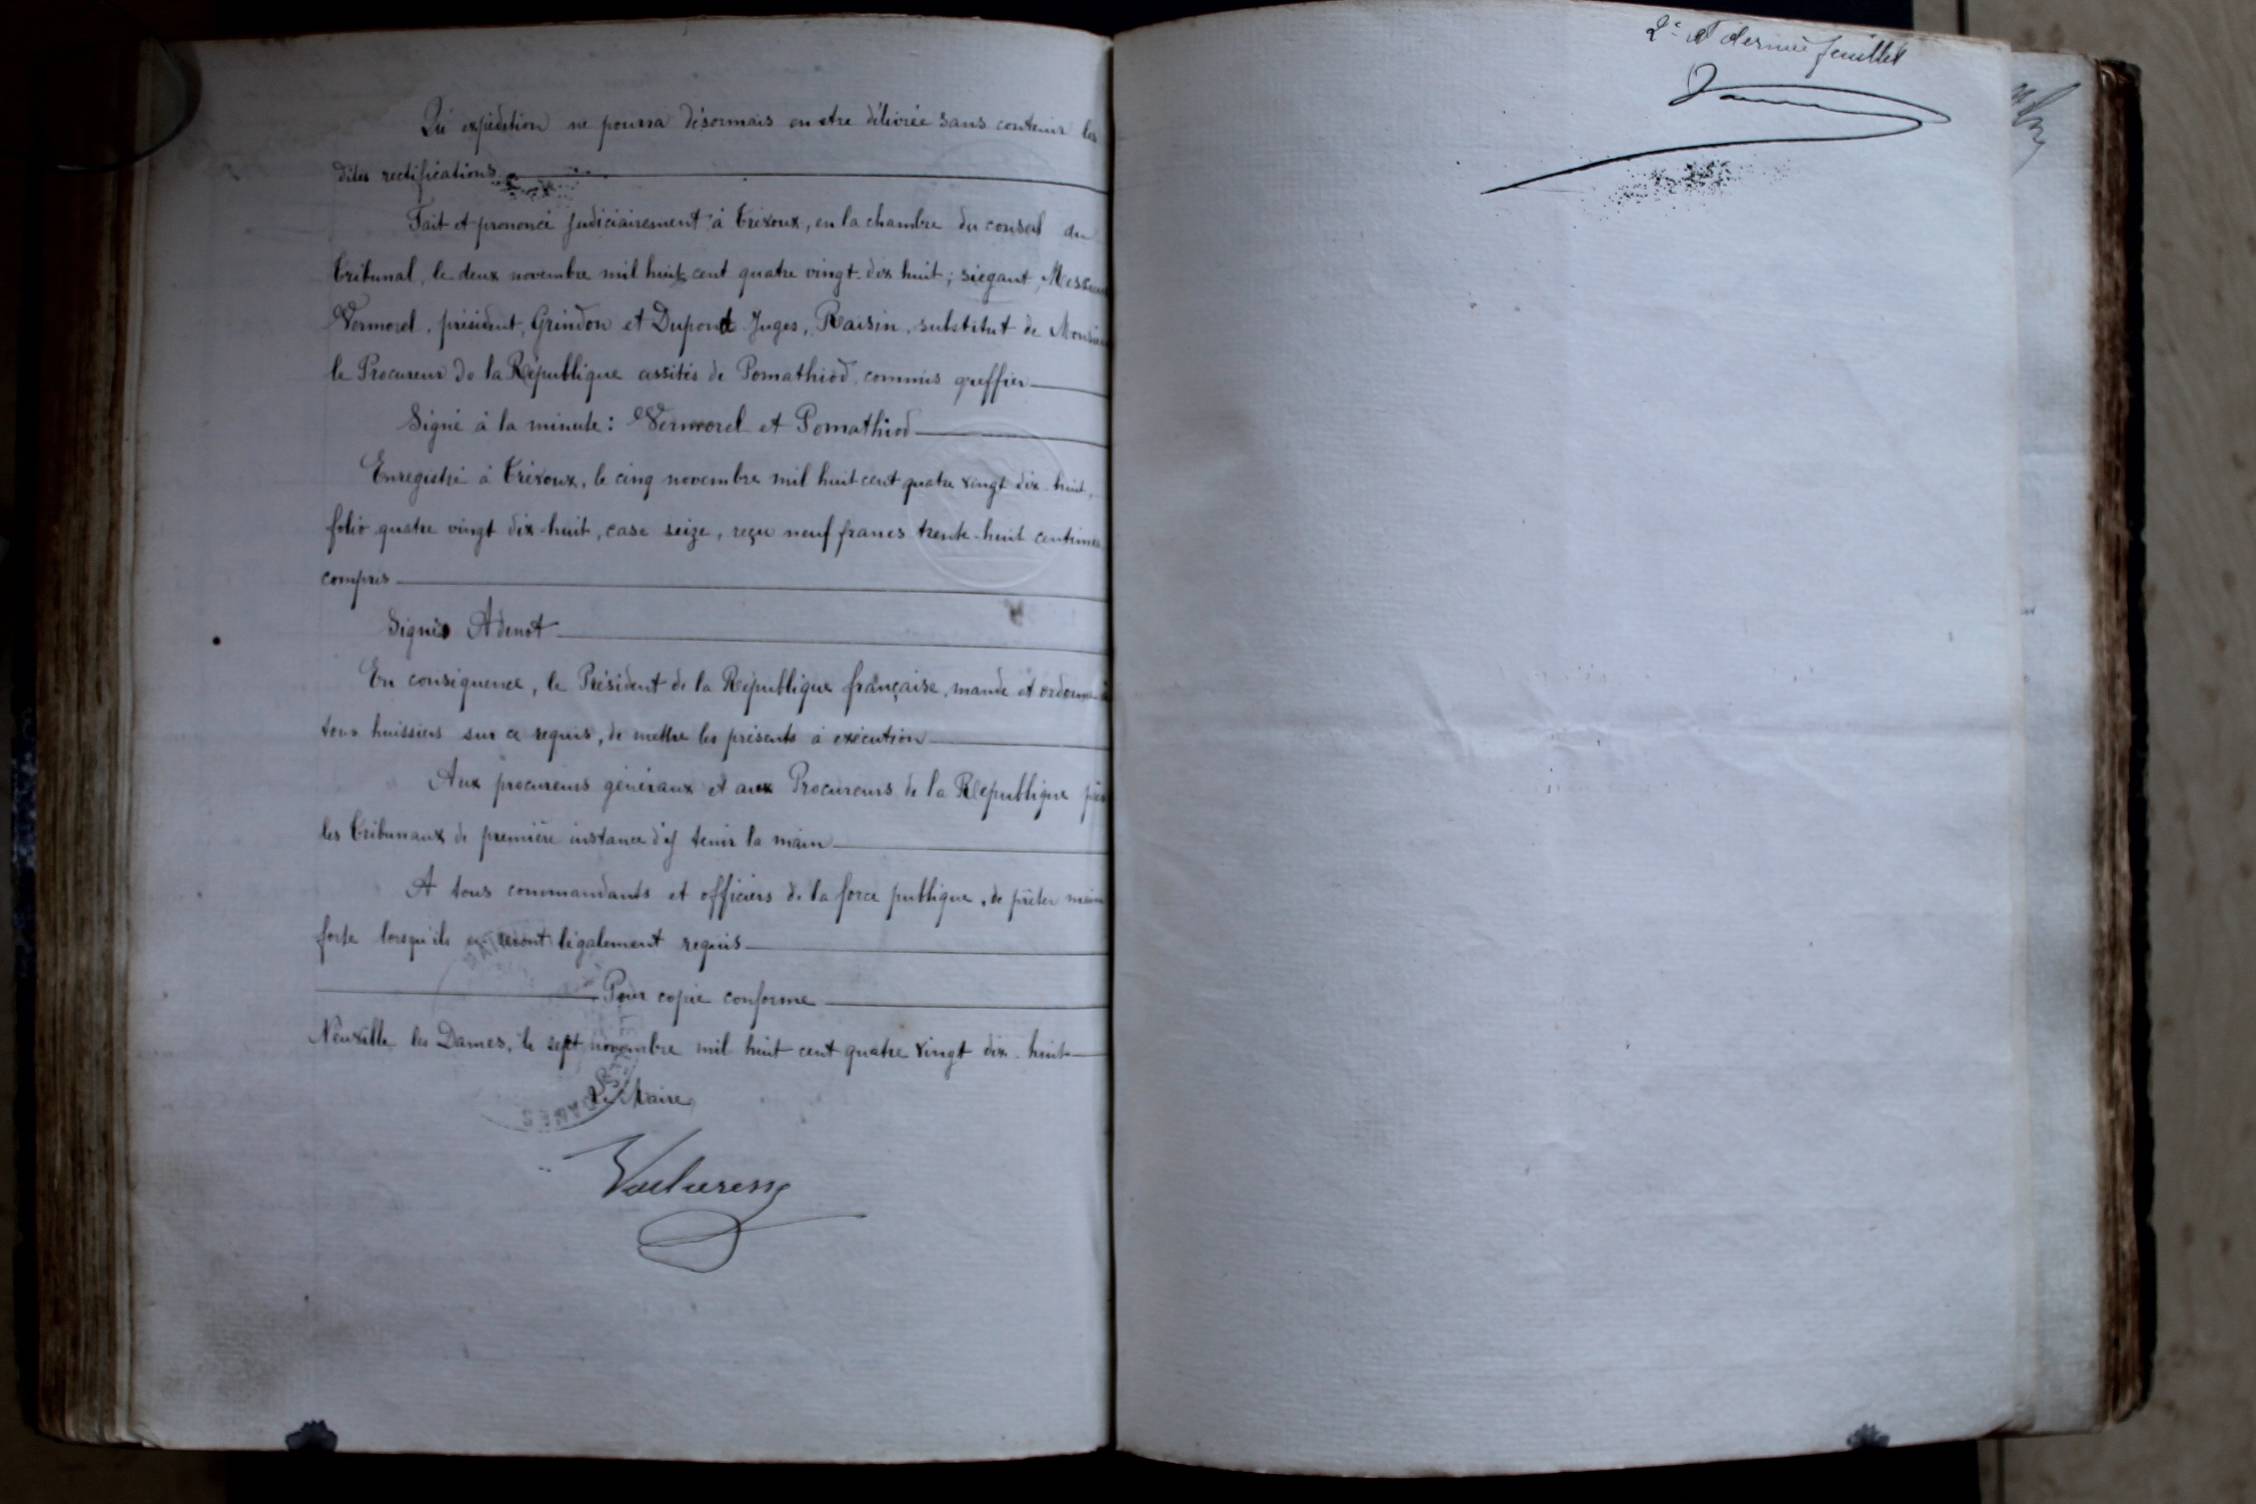 Qu'expédition ne pourra désormais en être délivrée sans contenir les
dites rectifications
Fait et prononcé judiciairement à Trévoux, en la chambre du conseil du
Tribunal, le deux novembre mil huit cent quatre vingt-dix huit; siégant, Messieurs
Vermorel, président, Grindon et Dupond Juges, Raisin, substitut de Monsieur
le Procureur de la République assités de Pomathiod, commis greffier
Signé à la minute : Vermorel et Pomathiod
Enregistré à Trévoux, le cinq novembre mil huit cent quatre vingt dix-huit,
folio quatre vingt dix-huit, case seize, reçu neuf francs trente-huit centimes
compris
Signé Adenot
En conséquence, le Président de la République française, mande et ordonne à
tous huissiers sur ce requis, de mettre les présents à exécution
Aux procureurs généraux et aux Procureurs de la République près
les Tribunaux de première instance d'y tenir la main
A tous commandants et officiers de la force publique, de prêter main
forte lorsqu'ils en seront légalement requis
Pour copie conforme
Neuville les Dames, le sept novembre mil huit cent quatre vingt dix-huit
Le Maire
2e et dernier feuillet